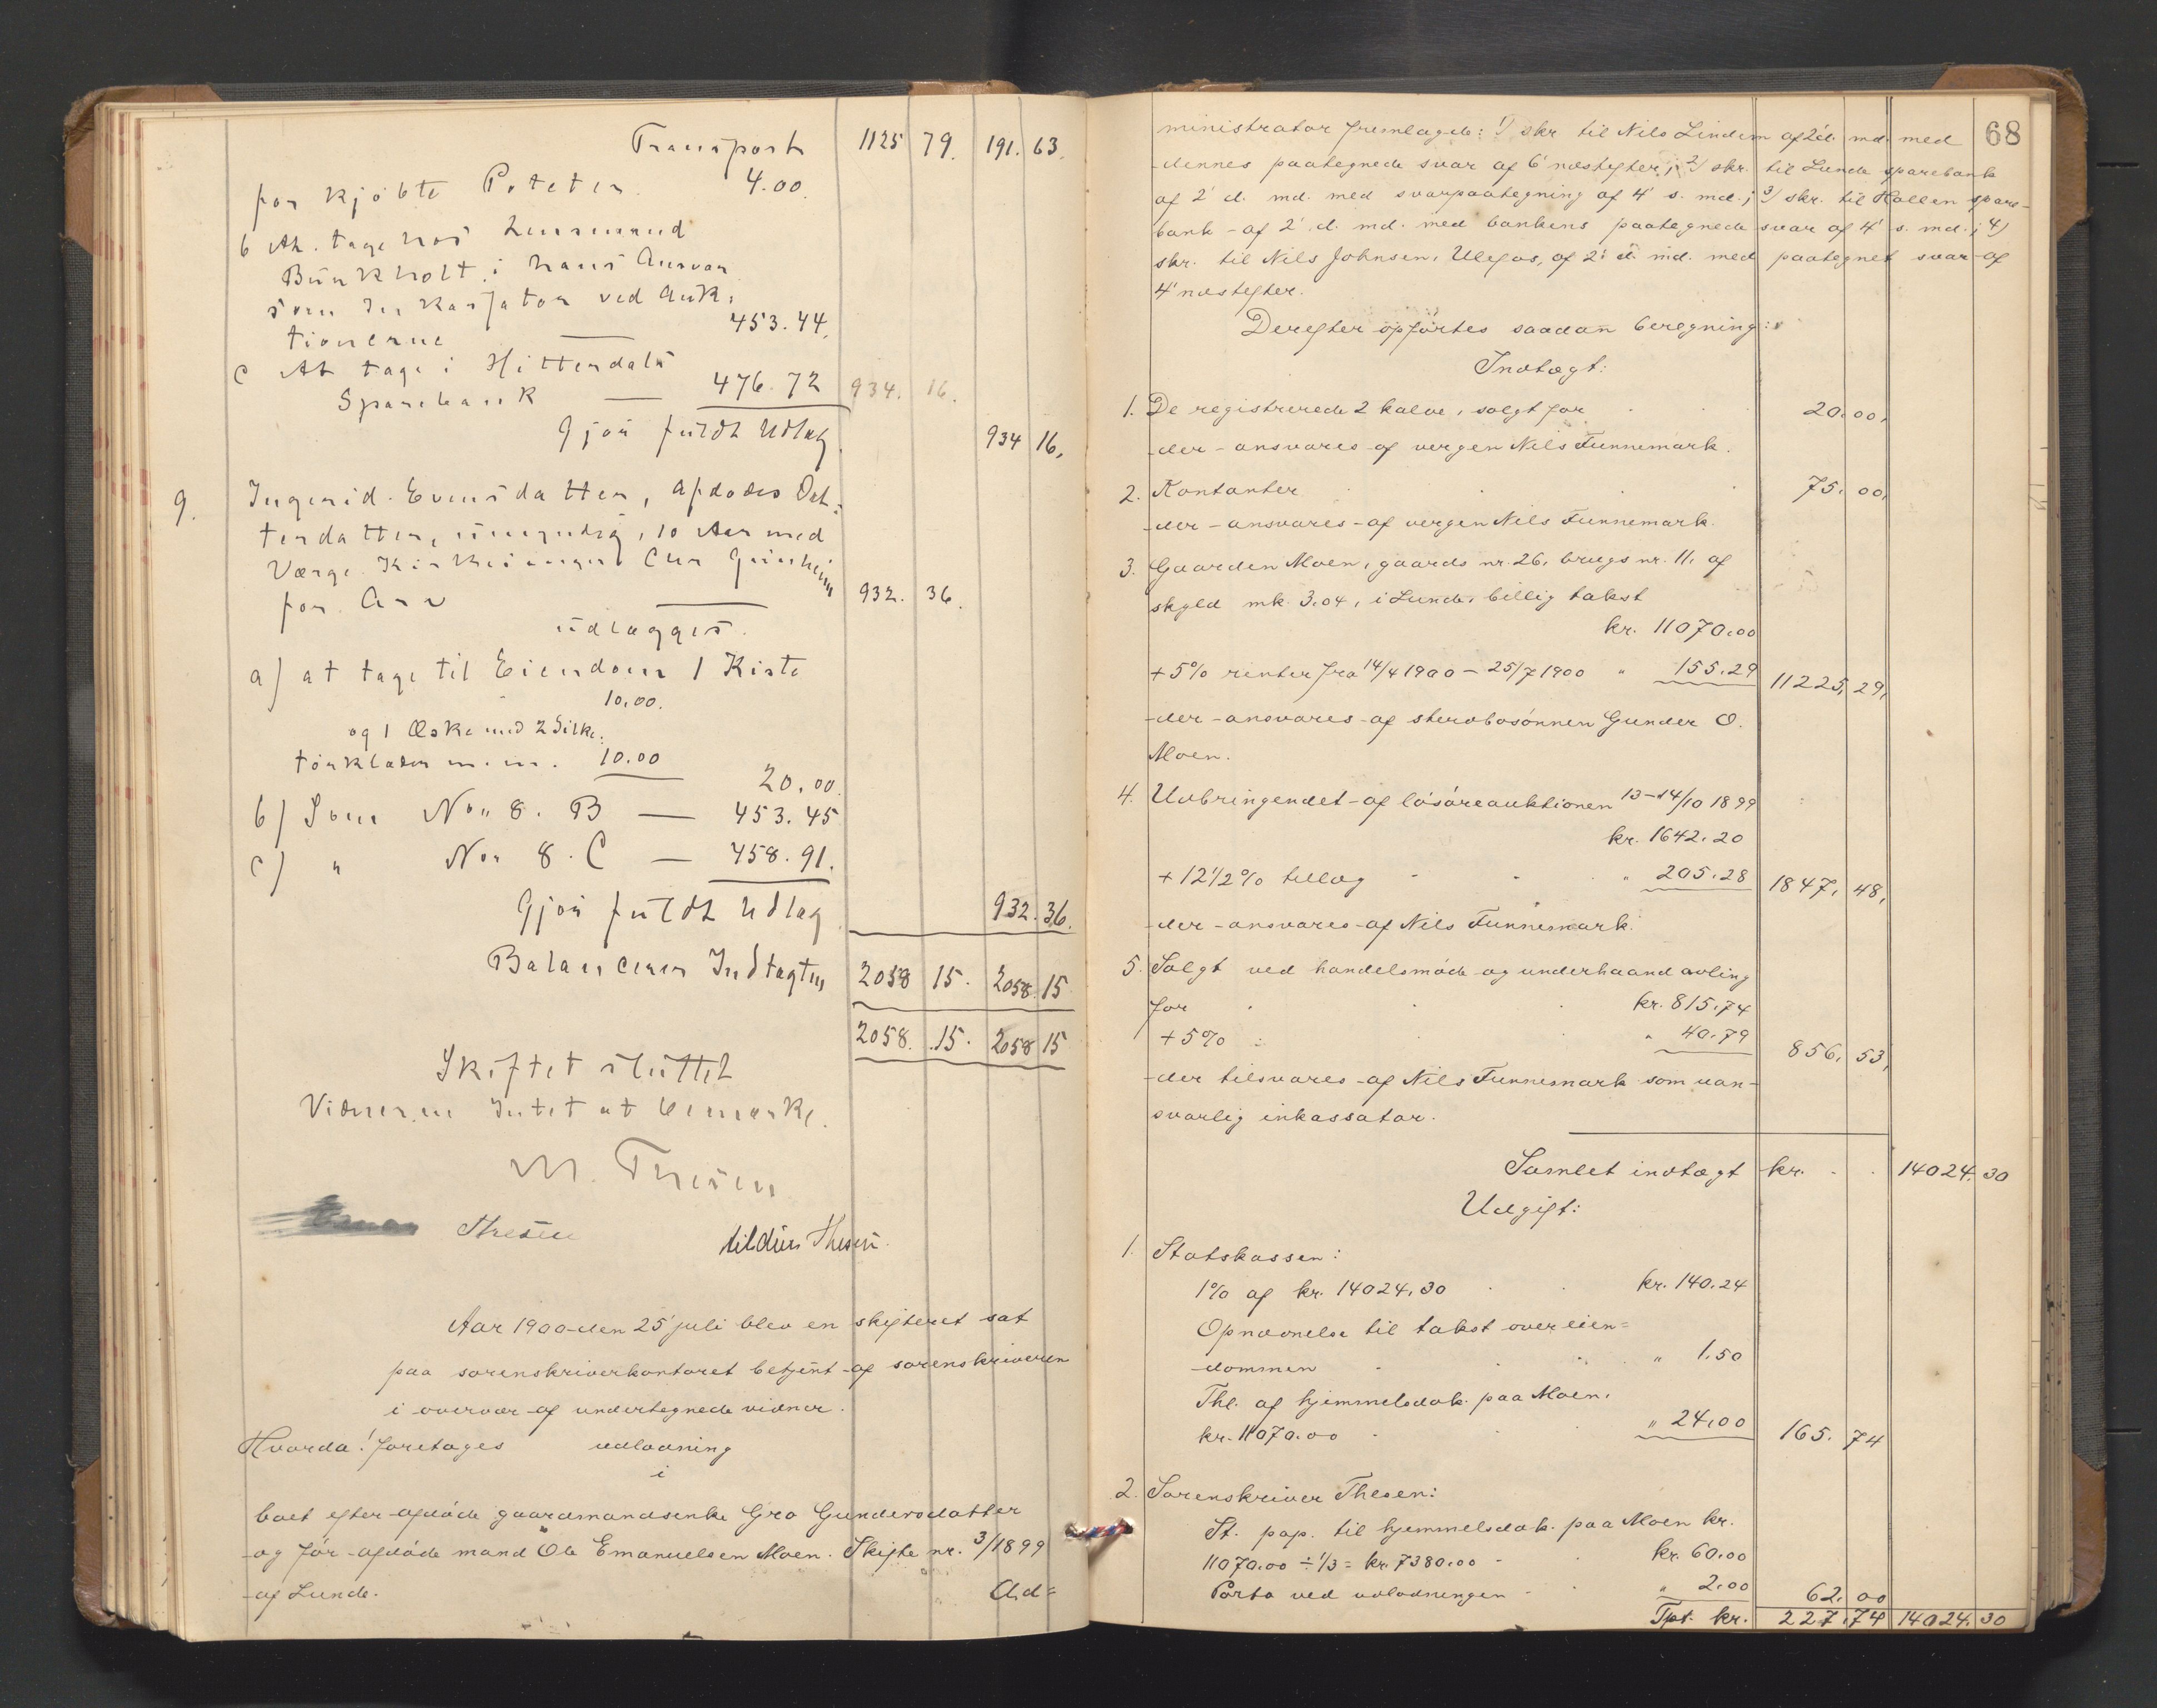 Transport 1125 79. 191. 63.
for kjöbte Poteter 4.00.
b At tage hos Lensmand
Bunkholt i hans Ansvar
som Inkassator ved Auk:
tionerne — 453.44.
c At tage i Hitterdals
Sparebank — 476.72 934. 16.
Gjør fuldt Udlæg 934 16.
9. Ingerid Evensdatter, afdødes Dat:
terdatter, umyndig, 10 Aar med
Værge Kirkesanger Chr Grinheim
for Arv — 932. 36.
udlægges.
a) at tage til Eiendom 1 Kiste
10.00.
og 1 Æske med 2 Silke:
törklæder m.m. 10.00
20.00.
b) Som No 8. B — 453.45
c) " No 8. C — 458.91.
Gjør fuldt Udlæg 932.36.
Balancerer Indtægten 2058 15. 2058 15
2058. 15. 2058 15
Skiftet sluttet
Vidnerne Intet at bemærke.
M. Thesen
Thesen Thesen
Aar 1900 den 25' juli blev en skifteret sat
paa sorenskriverkontoret betjent af sorenskriveren
i overvær af undertegnede vidner.
Hvorda! foretoges udlodning
i
boet efter afdøde gaardmandsenke Gro Gundersdatter
og før afdøde mand Ole Emanuelsen Moen. Skifte nr. 3/1899
af Lunde. Ad=
68
ministrator fremlagde: 1) skr til Nils Lindem af 2' d. md. med
dennes paategnede svar af 6' næstefter; 2) skr. til Lunde sparebank
af 2' d. md. med svarpaategning af 4' s. md.; 3) skr. til Hollen spare-
bank af 2' d. md. med bankens paategnede svar af 4' s. md.; 4)
skr. til Nils Johnsen, Ulefos, af 2' d. md. med paategnet svar af
4' næstefter.
Derefter opførtes saadan beregning:
Indtægt:
1. De registrerede 2 kalve, solgt for 20.00.
der ansvares af vergen Nils Funnemark.
2. Kontanter 75.00.
der ansvares af vergen Nils Funnemark.
3. Gaarden Moen, gaards nr. 26, brugs nr. 11, af
skyld mk. 3.04, i Lunde, billig takst
kr. 11070.00
+ 5% renter fra 14/4 1900 – 25/7 1900 " 155.29 11225, 29,
der ansvares af stervbosønnen Gunder O.
Moen.
4. Udbringendet af løsøreauktionen 13-14/10 1899
kr. 1642.20
+ 12 1/2 % tillæg " 205.28 1847, 48,
der ansvares af Nils Funnemark.
5. Solgt ved handelsmøde og underhaand avling
for kr. 815.74
+ 5% " 40.79 856, 53,
der tilsvares af Nils Funnemark som uan-
svarlig inkassator.
Samlet indtægt kr. 14024.30
Udgift:
1. Statskassen:
1% af kr. 14024.30 kr. 140.24
Opnævnelse til takst over eien=
dommen " 1.50
Thl. af hjemmelsdok. paa Moen,
kr. 11070.00 " 24.00 165. 74
2. Sorenskriver Thesen:
St. pap. til hjemmelsdok. paa Moen kr.
11070.00 ÷ 1/3 = kr. 7380.00 kr. 60.00
Porto ved udlodningen " 2.00 62. 00
Tpt. kr. 227.74 14024.30